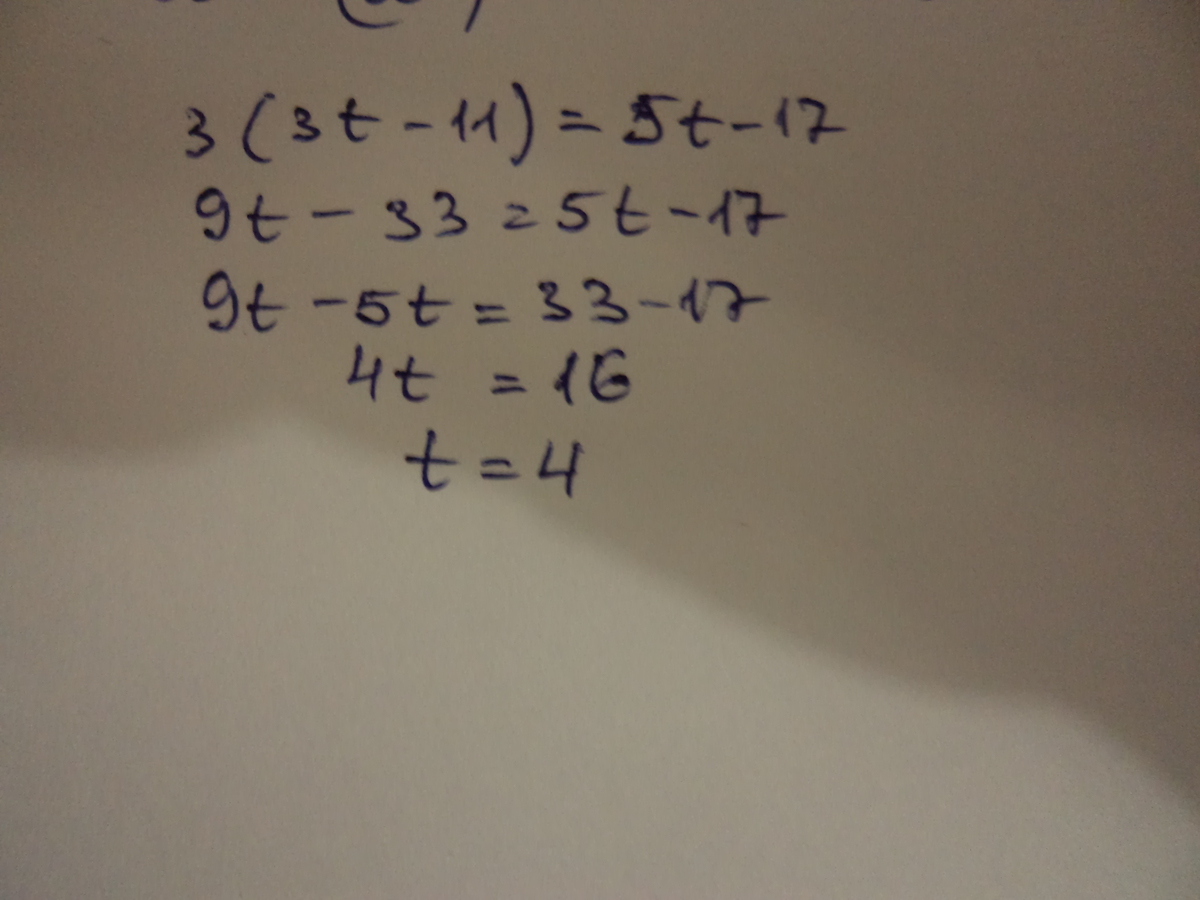 3(3t-11) = 5t-17
9t - 33 = 5t-17
9t - 5t = 33-17
4t = 16
t = 4